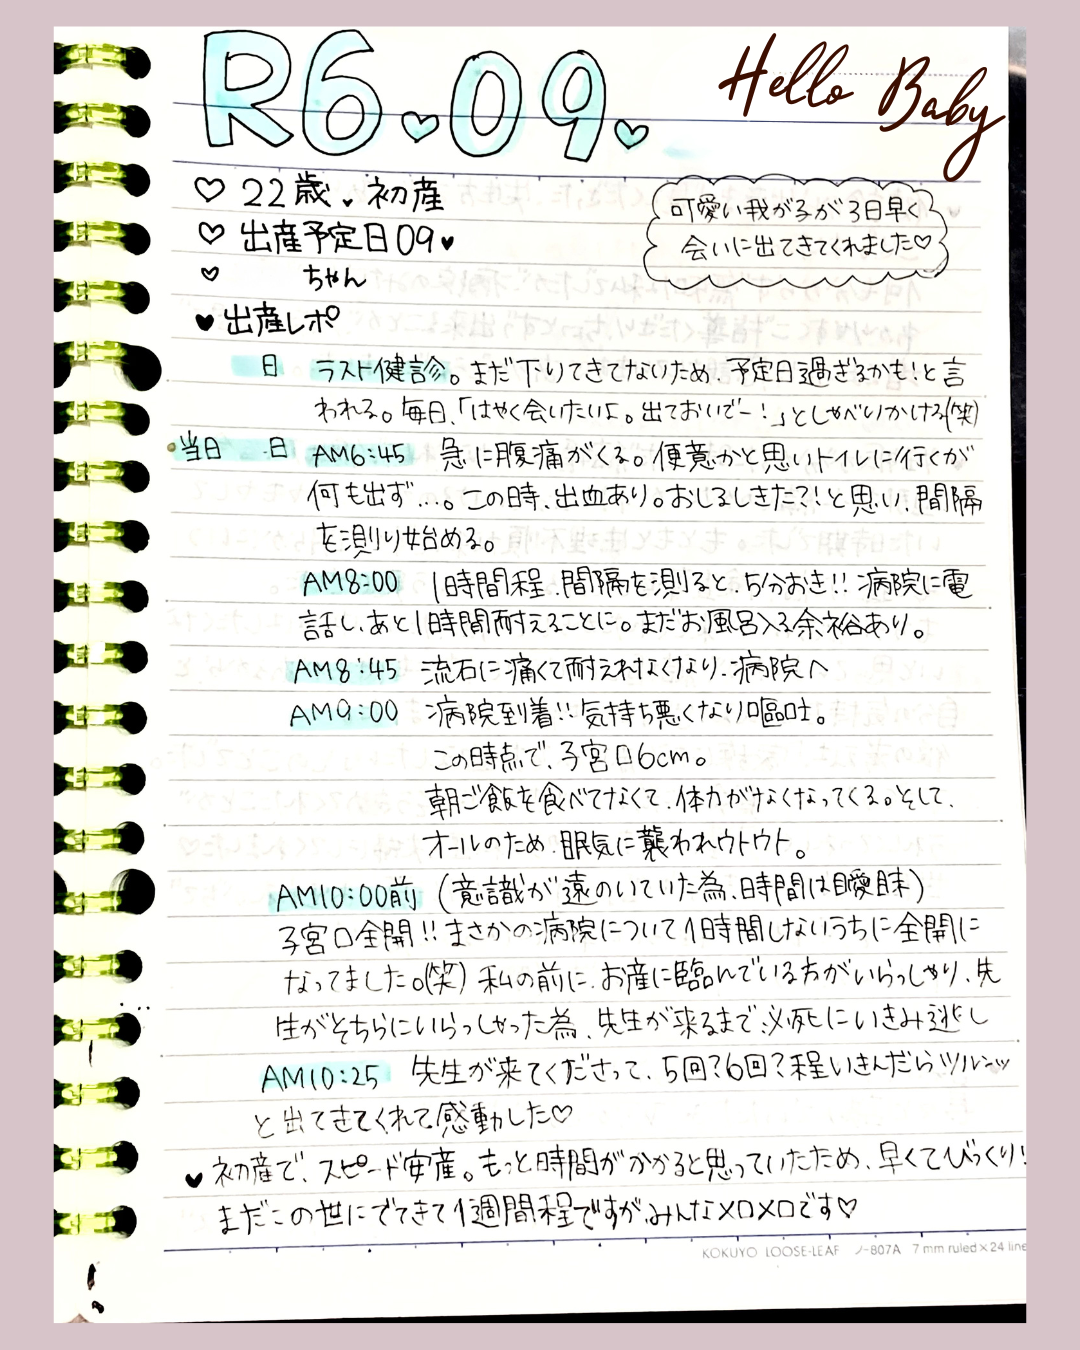 R6♡09♡
Hello Baby
♡ 22歳、初産
♡ 出産予定日09♥
♡ ちゃん
♥ 出産レポ
可愛い我が子が3日早く
会いに出てきてくれました♡
日 ラスト健診。まだ下りてきてないため、予定日過ぎるかも!と言
われる。毎日、「はやく会いたいよ。出ておいでー!」としゃべりかける(笑)
当日 日 AM6:45 急に腹痛がくる。便意かと思いトイレに行くが
何も出ず…。この時、出血あり。おしるしきた?!と思い、間隔
を測り始める。
AM8:00 1時間程、間隔を測ると、5分おき!!病院に電
話し、あと1時間耐えることに。まだお風呂入る余裕あり。
AM8:45 流石に痛くて耐えれなくなり、病院へ
AM9:00 病院到着!!気持ち悪くなり嘔吐。
この時点で、子宮口6cm。
朝ご飯を食べてなくて、体力がなくなってくる。そして、
オールのため、眠気に襲われウトウト。
AM10:00前 (意識が遠のいていた為、時間は曖昧)
子宮口全開!!まさかの病院について1時間しないうちに全開に
なってました。(笑) 私の前に、お産に臨んでいる方がいらっしゃり、先
生がそちらにいらっしゃった為、先生が来るまで、必死にいきみ逃し
AM10:25 先生が来てくださって、5回?6回?程いきんだらツルンッ
と出てきてくれて感動した♡
♥ 初産で、スピード安産。もっと時間がかかると思っていたため、早くてびっくり!
まだこの世にでてきて1週間程ですが、みんなメロメロです♡
KOKUYO LOOSE-LEAF ノ-807A 7mm ruled×24 line